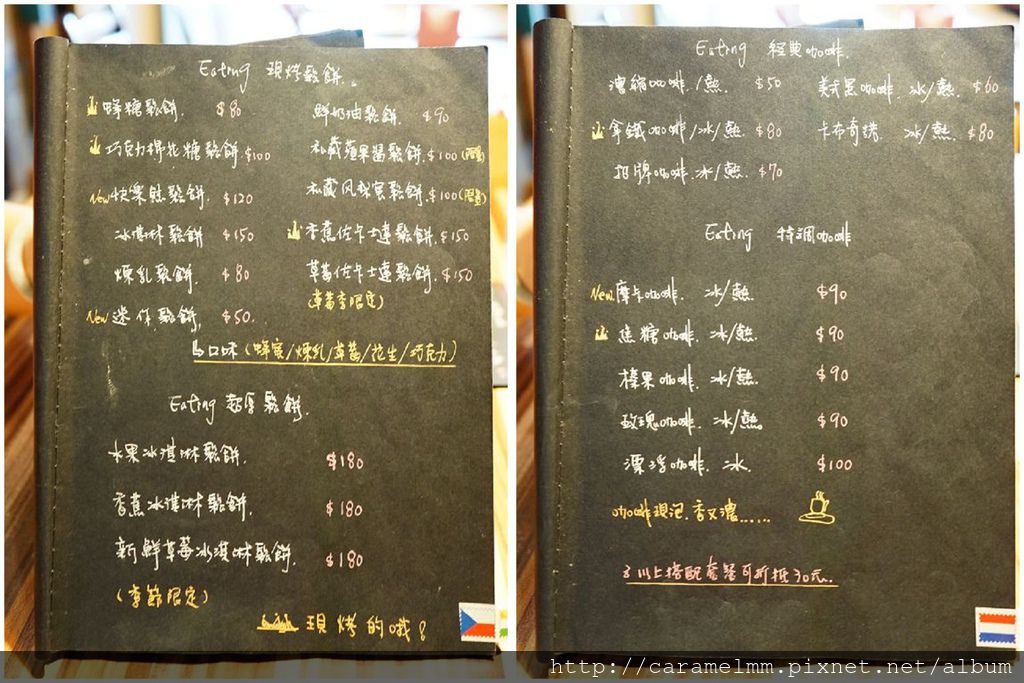 Eating 現烤鬆餅.
蜂糖鬆餅. $80
鮮奶油鬆餅. $90
巧克力棉花糖鬆餅 $100
私藏蘋果醬鬆餅. $100 (限量)
New 快樂熊鬆餅. $120
私藏风梨家鬆餅. $100 (限量)
冰淇淋鬆餅 $150
香蕉佐卡士達鬆餅. $150
煉乳鬆餅. $80
草莓佐卡士達鬆餅. $150
(草莓季限定)
New 迷你鬆餅. $50.
口味 (蜂蜜/煉乳/草莓/花生/巧克力)
Eating 超厚鬆餅.
水果冰淇淋鬆餅. $180
香蕉冰淇淋鬆餅. $180
新鮮草莓冰淇淋鬆餅. $180
(季節限定)
現烤的哦!
Eating 經典咖啡.
濃縮咖啡./熱. $50
美式黑咖啡. 冰/熱. $60
拿鐵咖啡/冰/熱. $80
卡布奇諾. 冰/熱. $80
招牌咖啡.冰/熱. $70
Eating 特調咖啡
New 摩卡咖啡. 冰/熱. $90
焦糖咖啡. 冰/熱. $90
榛果咖啡. 冰/熱. $90
玫瑰咖啡. 冰/熱. $90
漂浮咖啡. 冰. $100
咖啡現泡. 香又濃......
以上搭配套餐可折抵30元.
http://caramelmm.pixnet.net/album